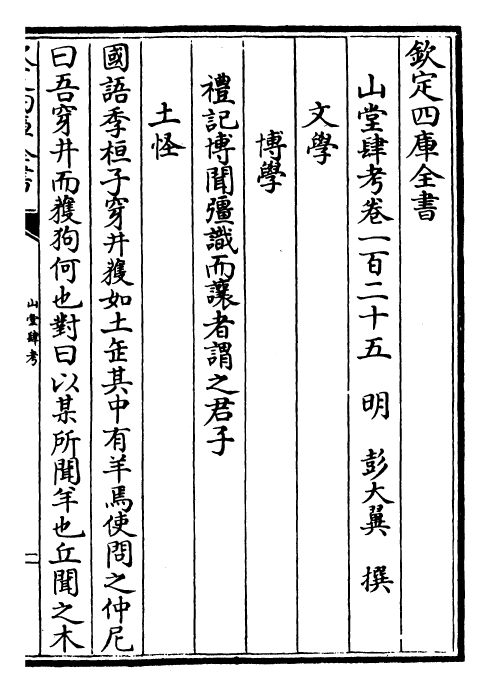 欽定四庫全書
山堂肆考卷一百二十五　明　彭大翼　撰
文學
博學
禮記博聞彊識而讓者謂之君子
土怪
國語季桓子穿井獲如土缶其中有羊焉使問之仲尼
曰吾穿井而獲狗何也對曰以某所聞羊也丘聞之木
山堂肆考